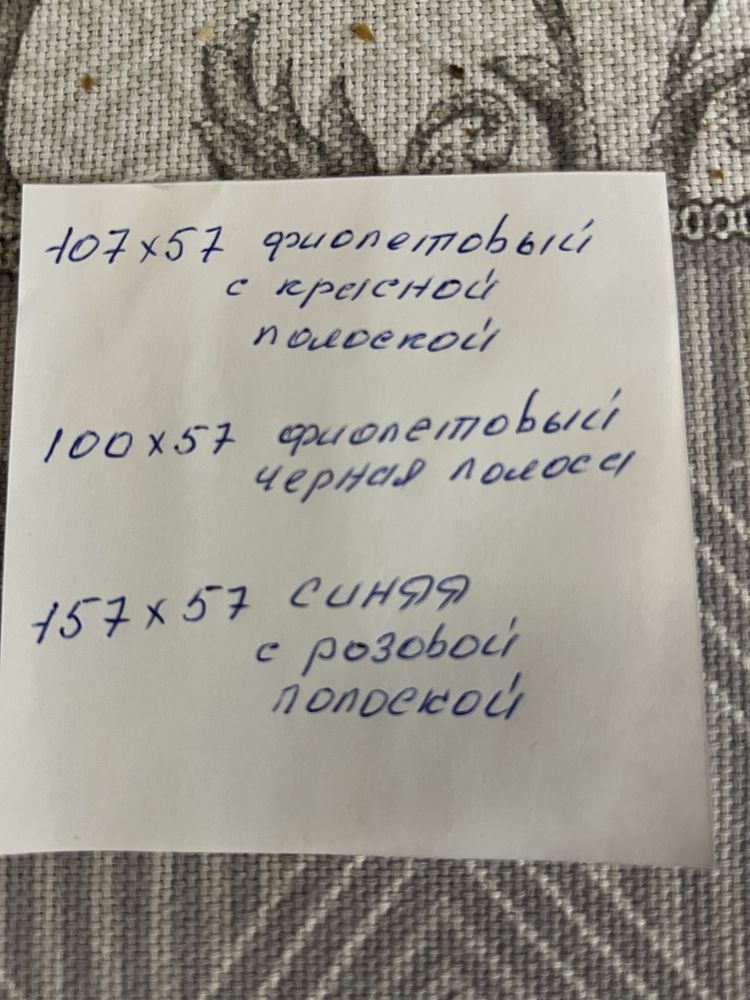 107x57 фиолетовый
с красной
полоской
100x57 фиолетовый
черная полоса
157x57 синяя
с розовой
полоской